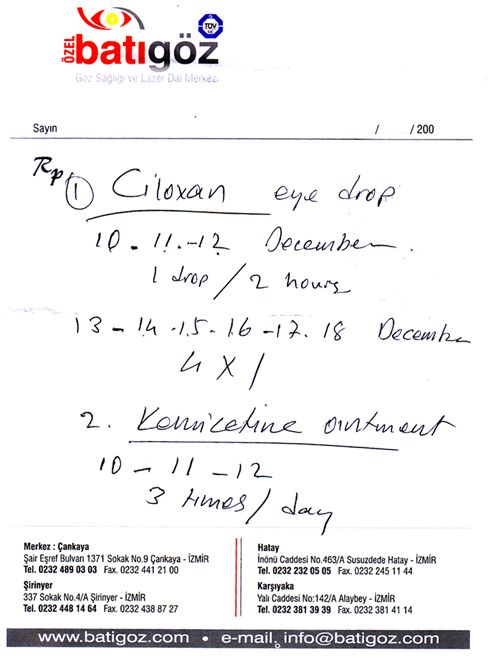 ÖZEL
batıgöz
TÜV
Göz Sağlığı ve Lazer Dal Merkezi
Sayın / /200
Rp
① Ciloxan eye drop
10 - 11 - 12 December.
1 drop / 2 hours
13 - 14 - 15 - 16 - 17 - 18 December
4 X 1
2. Kemicetine ointment
10 - 11 - 12
3 times / day
Merkez : Çankaya
Şair Eşref Bulvarı 1371 Sokak No.9 Çankaya - İZMİR
Tel. 0232 489 03 03 Fax. 0232 441 21 00
Şirinyer
337 Sokak No.4/A Şirinyer - İZMİR
Tel. 0232 448 14 64 Fax. 0232 438 87 27
Hatay
İnönü Caddesi No.463/A Susuzdede Hatay - İZMİR
Tel. 0232 232 05 05 Fax. 0232 245 11 44
Karşıyaka
Yalı Caddesi No:142/A Alaybey - İZMİR
Tel. 0232 381 39 39 Fax. 0232 381 41 14
www.batigoz.com • e-mail. info@batigoz.com